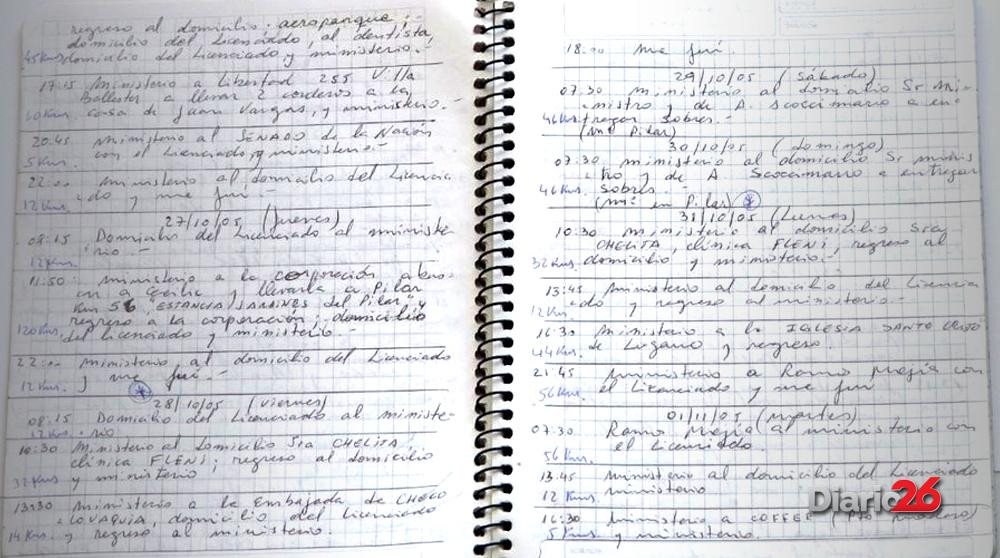 regreso al domicilio; aeroparque;
domicilio del Licenciado, al dentista,
45 Kms. domicilio del Licenciado y ministerio.-
17:15 Ministerio a Libertad 255 Villa
Ballester a llevar 2 corderos a la
casa de Juan Vargas, y ministerio.-
20:45 Ministerio al SENADO de la Nación
5 Kms. con el Licenciado, y ministerio.-
22:00 Ministerio al domicilio del Licencia
12 Kms. do y me fuí.-
27/10/05 (Jueves)
08:15 Domicilio del Licenciado al ministe-
12 Kms. rio.-
11:50 Ministerio a la corporación a bus-
car a y llevarla a Pilar
Km 56 "ESTANCIA JARDINES del Pilar" y
regreso a la corporación; domicilio
120 Kms. del Licenciado y ministerio.-
22:00 Ministerio, al domicilio del Licenciado
12 Kms. y me fuí.-
28/10/05 (Viernes)
08:15 Domicilio del Licenciado al ministe-
12 Kms. rio
10:30 Ministerio al domicilio Sra CHELITA,
clínica FLENI; regreso al domicilio
32 Kms y ministerio
13:30 Ministerio a la Embajada de CHECO
LOVAQUIA, domicilio del Licenciado
14 Kms y regreso al ministerio.
18:00 me fuí.
29/10/05 (Sábado)
07:30 ministerio al domicilio Sr Mi-
nistro y de A. Scoccimario a en-
46 Kms. tregar sobres.-
(Mº Pilar)
30/10/05 (domingo)
07:30 ministerio al domicilio Sr minis
tro y de A Scoccimario a entregar
46 Kms. sobres.-
(Mº en Pilar)
31/10/05 (Lunes)
10:30 Ministerio al domicilio Sra
CHELITA, clínica FLENI, regreso al
32 Kms. domicilio y ministerio.-
13:45 Ministerio al domicilio del Licencia
12 Kms. do y regreso al ministerio.-
16:30 Ministerio a la IGLESIA SANTO CRISTO
44 Kms. de Lugano y regreso.
21:45 Ministerio a Ramos Mejía con
56 Kms. el Licenciado y me fuí
01/11/05 (martes)
07:30 Ramos Mejía al ministerio con
56 Kms. el Licenciado.
13:45 Ministerio al domicilio del Licenciado
12 Kms. y ministerio
16:30 Ministerio a COFEGE
5 Kms y ministerio.
Diario26